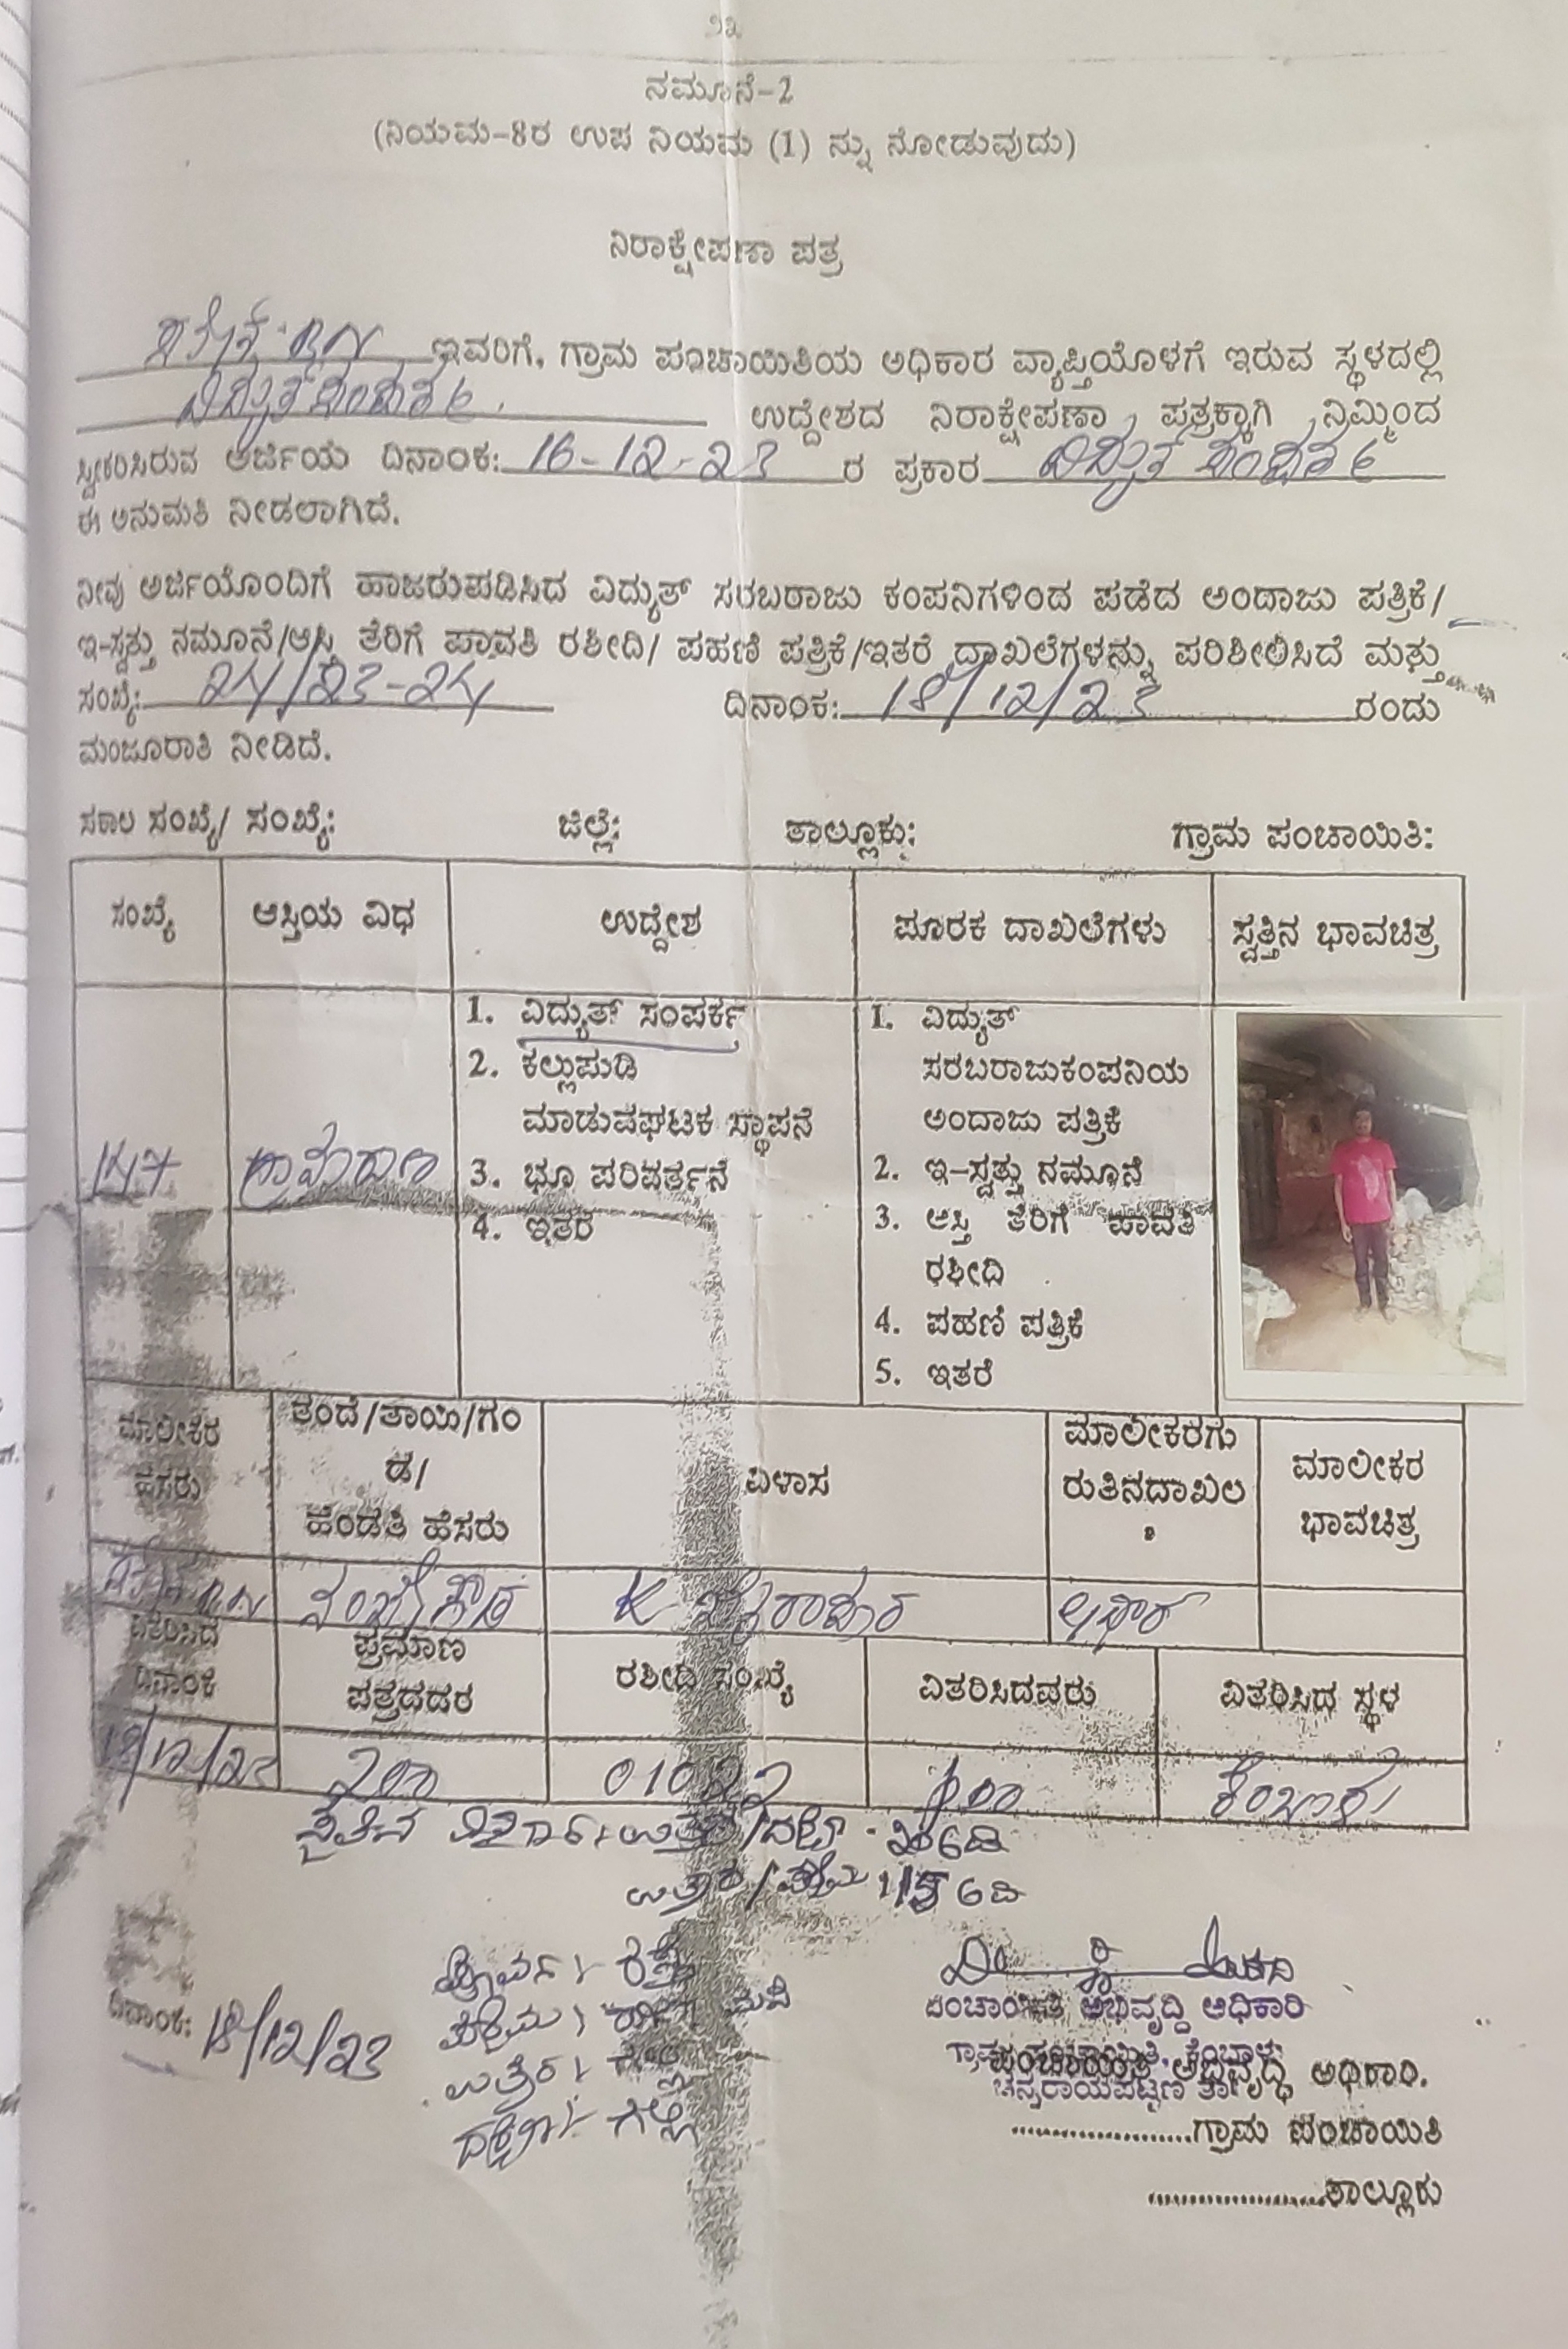 ೨೩
ನಮೂನೆ-2
(ನಿಯಮ-8ರ ಉಪ ನಿಯಮ (1) ನ್ನು ನೋಡುವುದು)
ನಿರಾಕ್ಷೇಪಣಾ ಪತ್ರ
ಇವರಿಗೆ, ಗ್ರಾಮ ಪಂಚಾಯಿತಿಯ ಅಧಿಕಾರ ವ್ಯಾಪ್ತಿಯೊಳಗೆ ಇರುವ ಸ್ಥಳದಲ್ಲಿ
ವಿದ್ಯುತ್ ಸಂಪರ್ಕ ಉದ್ದೇಶದ ನಿರಾಕ್ಷೇಪಣಾ ಪತ್ರಕ್ಕಾಗಿ ನಿಮ್ಮಿಂದ
ಸ್ವೀಕರಿಸಿರುವ ಅರ್ಜಿಯ ದಿನಾಂಕ: 16-12-23 ರ ಪ್ರಕಾರ ವಿದ್ಯುತ್ ಸಂಪರ್ಕ
ಈ ಅನುಮತಿ ನೀಡಲಾಗಿದೆ.
ನೀವು ಅರ್ಜಿಯೊಂದಿಗೆ ಹಾಜರುಪಡಿಸಿದ ವಿದ್ಯುತ್ ಸರಬರಾಜು ಕಂಪನಿಗಳಿಂದ ಪಡೆದ ಅಂದಾಜು ಪತ್ರಿಕೆ/
ಇ-ಸ್ವತ್ತು ನಮೂನೆ/ಆಸ್ತಿ ತೆರಿಗೆ ಪಾವತಿ ರಶೀದಿ/ ಪಹಣಿ ಪತ್ರಿಕೆ/ಇತರೆ ದಾಖಲೆಗಳನ್ನು ಪರಿಶೀಲಿಸಿದೆ ಮತ್ತು
ಸಂಖ್ಯೆ: 24/23-24 ದಿನಾಂಕ: 18/12/23 ರಂದು
ಮಂಜೂರಾತಿ ನೀಡಿದೆ.
ಸಕಾಲ ಸಂಖ್ಯೆ/ ಸಂಖ್ಯೆ: ಜಿಲ್ಲೆ: ತಾಲ್ಲೂಕು: ಗ್ರಾಮ ಪಂಚಾಯಿತಿ:
ಸಂಖ್ಯೆ ಆಸ್ತಿಯ ವಿಧ ಉದ್ದೇಶ ಪೂರಕ ದಾಖಲೆಗಳು ಸ್ವತ್ತಿನ ಭಾವಚಿತ್ರ
147
1. ವಿದ್ಯುತ್ ಸಂಪರ್ಕ
2. ಕಲ್ಲುಪುಡಿ
ಮಾಡುವಘಟಕ ಸ್ಥಾಪನೆ
3. ಭೂ ಪರಿವರ್ತನೆ
4. ಇತರ
1. ವಿದ್ಯುತ್
ಸರಬರಾಜುಕಂಪನಿಯ
ಅಂದಾಜು ಪತ್ರಿಕೆ
2. ಇ-ಸ್ವತ್ತು ನಮೂನೆ
3. ಆಸ್ತಿ ತೆರಿಗೆ ಪಾವತಿ
ರಶೀದಿ
4. ಪಹಣಿ ಪತ್ರಿಕೆ
5. ಇತರೆ
ಮಾಲೀಕರ
ಹೆಸರು
ತಂದೆ/ತಾಯಿ/ಗಂ
ಡ/
ಹೆಂಡತಿ ಹೆಸರು
ವಿಳಾಸ
ಮಾಲೀಕರಗು
ರುತಿನದಾಖಲ
ೆ
ಮಾಲೀಕರ
ಭಾವಚಿತ್ರ
ವಿತರಿಸಿದ
ದಿನಾಂಕ
ಪ್ರಮಾಣ
ಪತ್ರದದರ
ರಶೀದಿ ಸಂಖ್ಯೆ
ವಿತರಿಸಿದವರು
ವಿತರಿಸಿದ ಸ್ಥಳ
18/12/23 200
ದಿನಾಂಕ: 18/12/23
ಪಂಚಾಯಿತಿ ಅಭಿವೃದ್ಧಿ ಅಧಿಕಾರಿ
ಗ್ರಾಮ ಪಂಚಾಯಿತಿ, ಕೆಂಬಾಳು
ಪಂಚಾಯಿತಿ ಅಭಿವೃದ್ಧಿ ಅಧಿಕಾರಿ.
ಚನ್ನರಾಯಪಟ್ಟಣ ತಾ||
.....................ಗ್ರಾಮ ಪಂಚಾಯಿತಿ
.....................ತಾಲ್ಲೂಕು